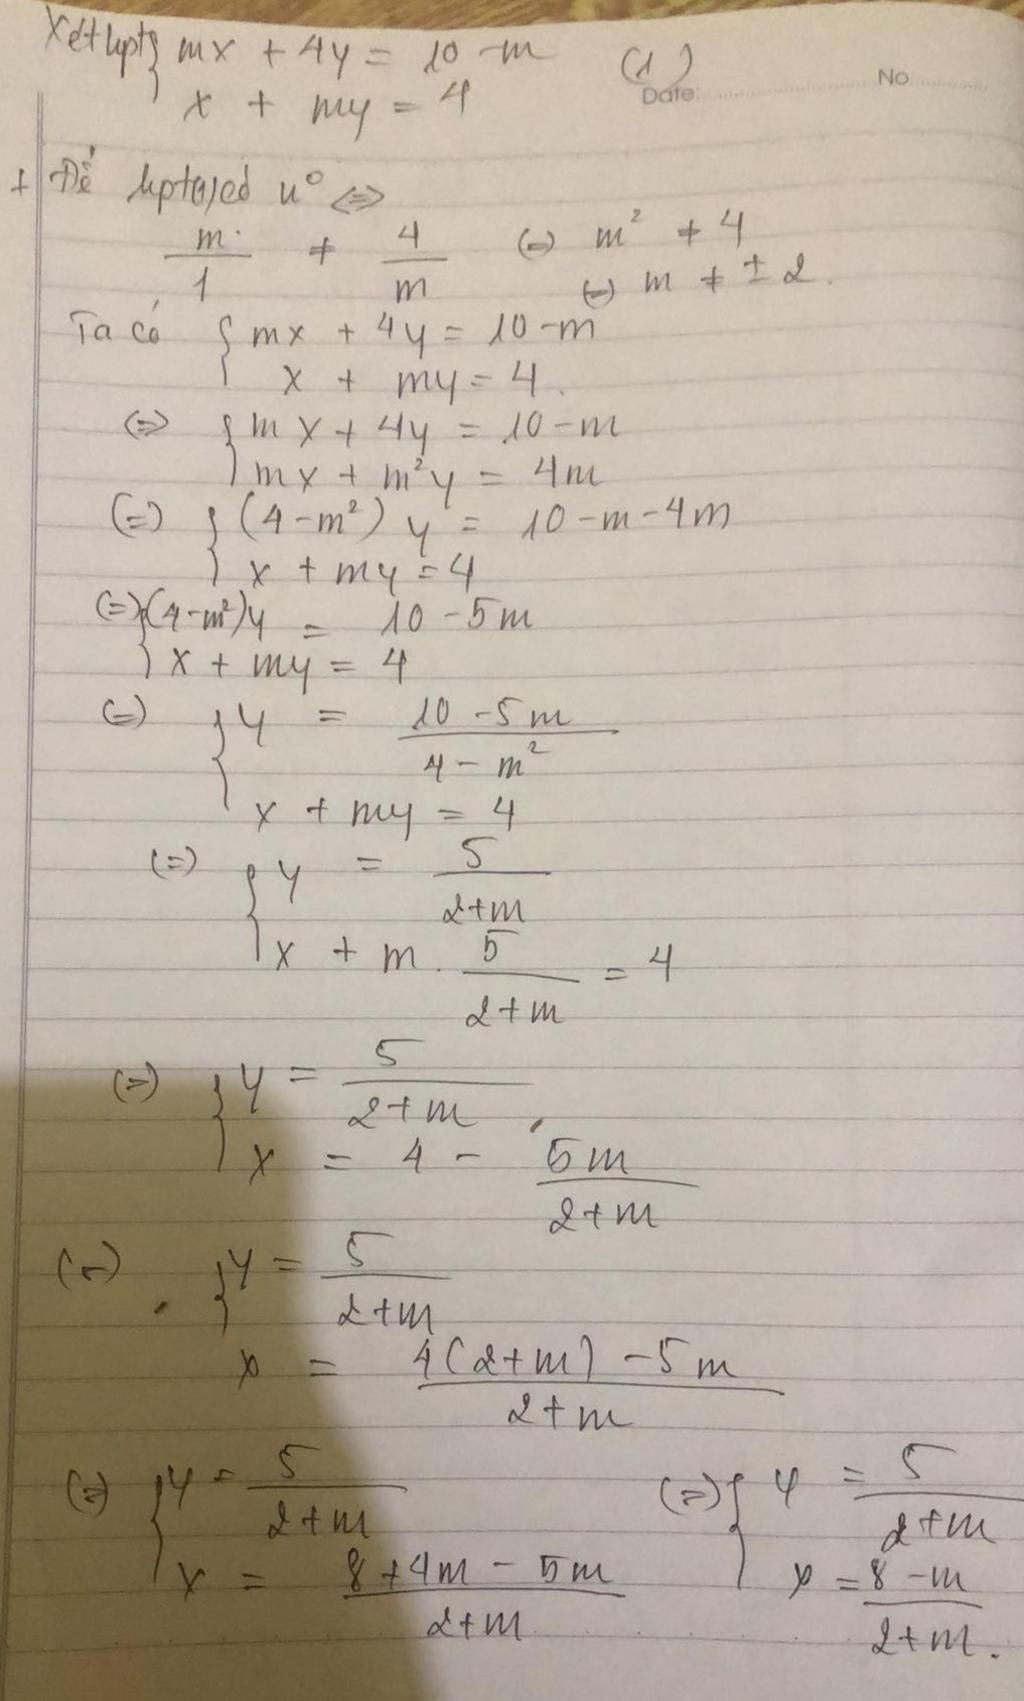 Xét hpt { mx + 4y = 10 - m (1)
x + my = 4
Date: No
+ Để hpt (1) có n° <=>
m/1 ≠ 4/m (=) m² ≠ 4
(=) m ≠ ± 2.
Ta có { mx + 4y = 10 - m
x + my = 4.
(=) { mx + 4y = 10 - m
mx + m²y = 4m
(=) { (4 - m²) y = 10 - m - 4m
x + my = 4
(=) { (4 - m²) y = 10 - 5m
x + my = 4
(=) { y = (10 - 5m)/(4 - m²)
x + my = 4
(=) { y = 5/(2+m)
x + m . 5/(2+m) = 4
(=) { y = 5/(2+m)
x = 4 - 5m/(2+m)
(=) { y = 5/(2+m)
x = (4(2+m) - 5m)/(2+m)
(=) { y = 5/(2+m)
x = (8 + 4m - 5m)/(2+m)
(=) { y = 5/(2+m)
x = (8 - m)/(2+m).